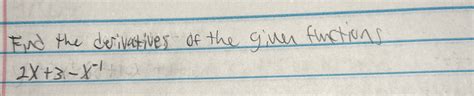 Find the derivatives of the given functions
2x+3-x⁻¹